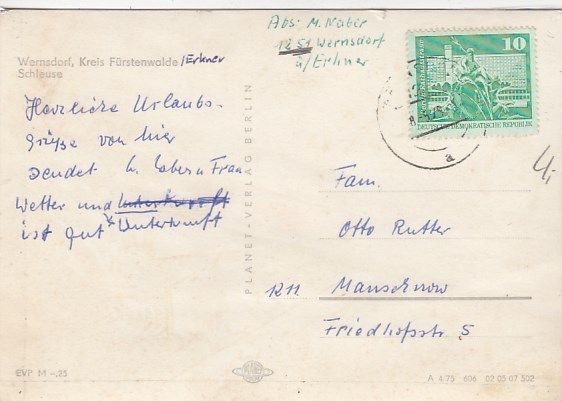 Wernsdorf, Kreis Fürstenwalde /Erkner
Schleuse
Abs: M. Naber
1251 Wernsdorf
ü/Erkner
10
DEUTSCHE DEMOKRATISCHE REPUBLIK
a
4,-
Herzliche Urlaubs-
grüße von hier
sendet u. Frau
Wetter und Unterkunft
ist gut Unterkunft
PLANET-VERLAG BERLIN
Fam.
Otto Rutter
Manschnow
Friedhofstr 5
EVP M -,25
A 4/75 606 03 05 07 502